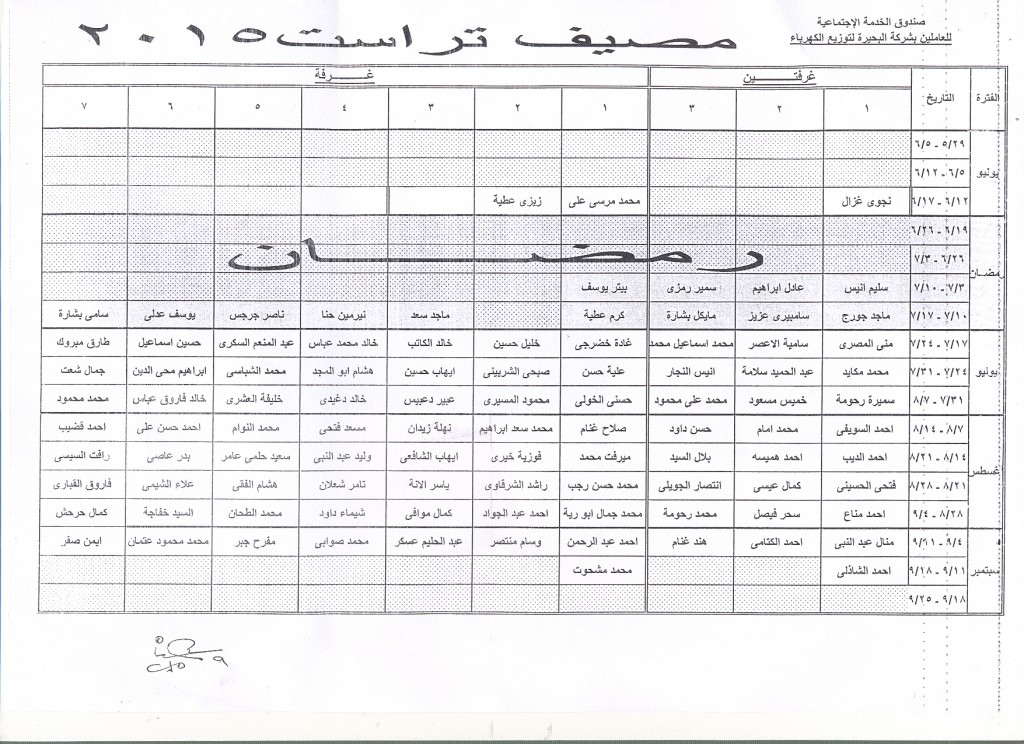 صندوق الخدمة الإجتماعية
للعاملين بشركة البحيرة لتوزيع الكهرباء
مصيف تراست ٢٠١٥
الفترة التاريخ غرفتين غـــرفة
١ ٢ ٣ ١ ٢ ٣ ٤ ٥ ٦ ٧
يونيو
٥/٢٩ - ٦/٥
٦/٥ - ٦/١٢
٦/١٢ - ٦/١٧ نجوى غزال محمد مرسى على زيزى عطية
رمضان
٦/١٩ - ٦/٢٦
رمضـــــان
٦/٢٦ - ٧/٣
٧/٣ - ٧/١٠ سليم انيس عادل ابراهيم سمير رمزى بيتر يوسف
٧/١٠ - ٧/١٧ ماجد جورج سامبيرى عزيز مايكل بشارة كرم عطية ماجد سعد نيرمين حنا ناصر جرجس يوسف عدلى سامى بشارة
يوليو
٧/١٧ - ٧/٢٤ منى المصرى سامية الاعصر محمد اسماعيل محمد غادة خضرجى خليل حسين خالد الكاتب خالد محمد عباس عبد المنعم السكرى حسين اسماعيل طارق مبروك
٧/٢٤ - ٧/٣١ محمد مكايد عبد الحميد سلامة انيس النجار علية حسن صبحى الشربينى ايهاب حسين هشام ابو المجد محمد الشباسى ابراهيم محى الدين جمال شعت
٧/٣١ - ٨/٧ سميرة رحومة خميس مسعود محمد على محمود حسنى الخولى محمود المسيرى عبير دعبيس خالد دغيدى خليفة العشرى خالد فاروق عباس محمد محمود
غسطس
٨/٧ - ٨/١٤ احمد السويفى محمد امام حسن داود صلاح غنام محمد سعد ابراهيم نهلة زيدان مسعد فتحى محمد النوام احمد حسن على احمد قضيب
٨/١٤ - ٨/٢١ احمد الديب احمد هميسه بلال السيد ميرفت محمد فوزية خيرى ايهاب الشافعى وليد عبد النبى سعيد حلمى عامر بدر عاصى رافت السيسى
٨/٢١ - ٨/٢٨ فتحى الحسينى كمال عيسى انتصار الجويلى محمد حسن رجب راشد الشرقاوى ياسر الانة تامر شعلان هشام الفقى علاء الشيمى فاروق القبارى
٨/٢٨ - ٩/٤ احمد مناع سحر فيصل محمد رحومة محمد جمال ابو رية احمد عبد الجواد كمال موافى شيماء داود محمد الطحان السيد خفاجة كمال حرحش
سبتمبر
٩/٤ - ٩/١١ منال عبد النبى احمد الكتامى هند غنام احمد عبد الرحمن وسام منتصر عبد الحليم عسكر محمد صوابى مفرح جبر محمد محمود عتمان ايمن صقر
٩/١١ - ٩/١٨ احمد الشاذلى محمد مشحوت
٩/١٨ - ٩/٢٥